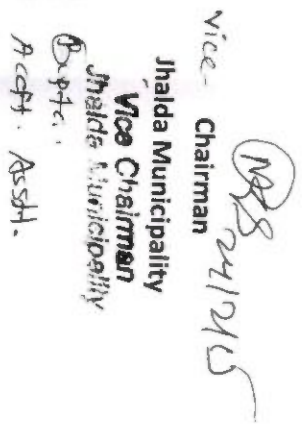 24/2/15
Vice- Chairman
Jhalda Municipality
Vice Chairman
Jhalda Municipality
Acctt. Asstt.